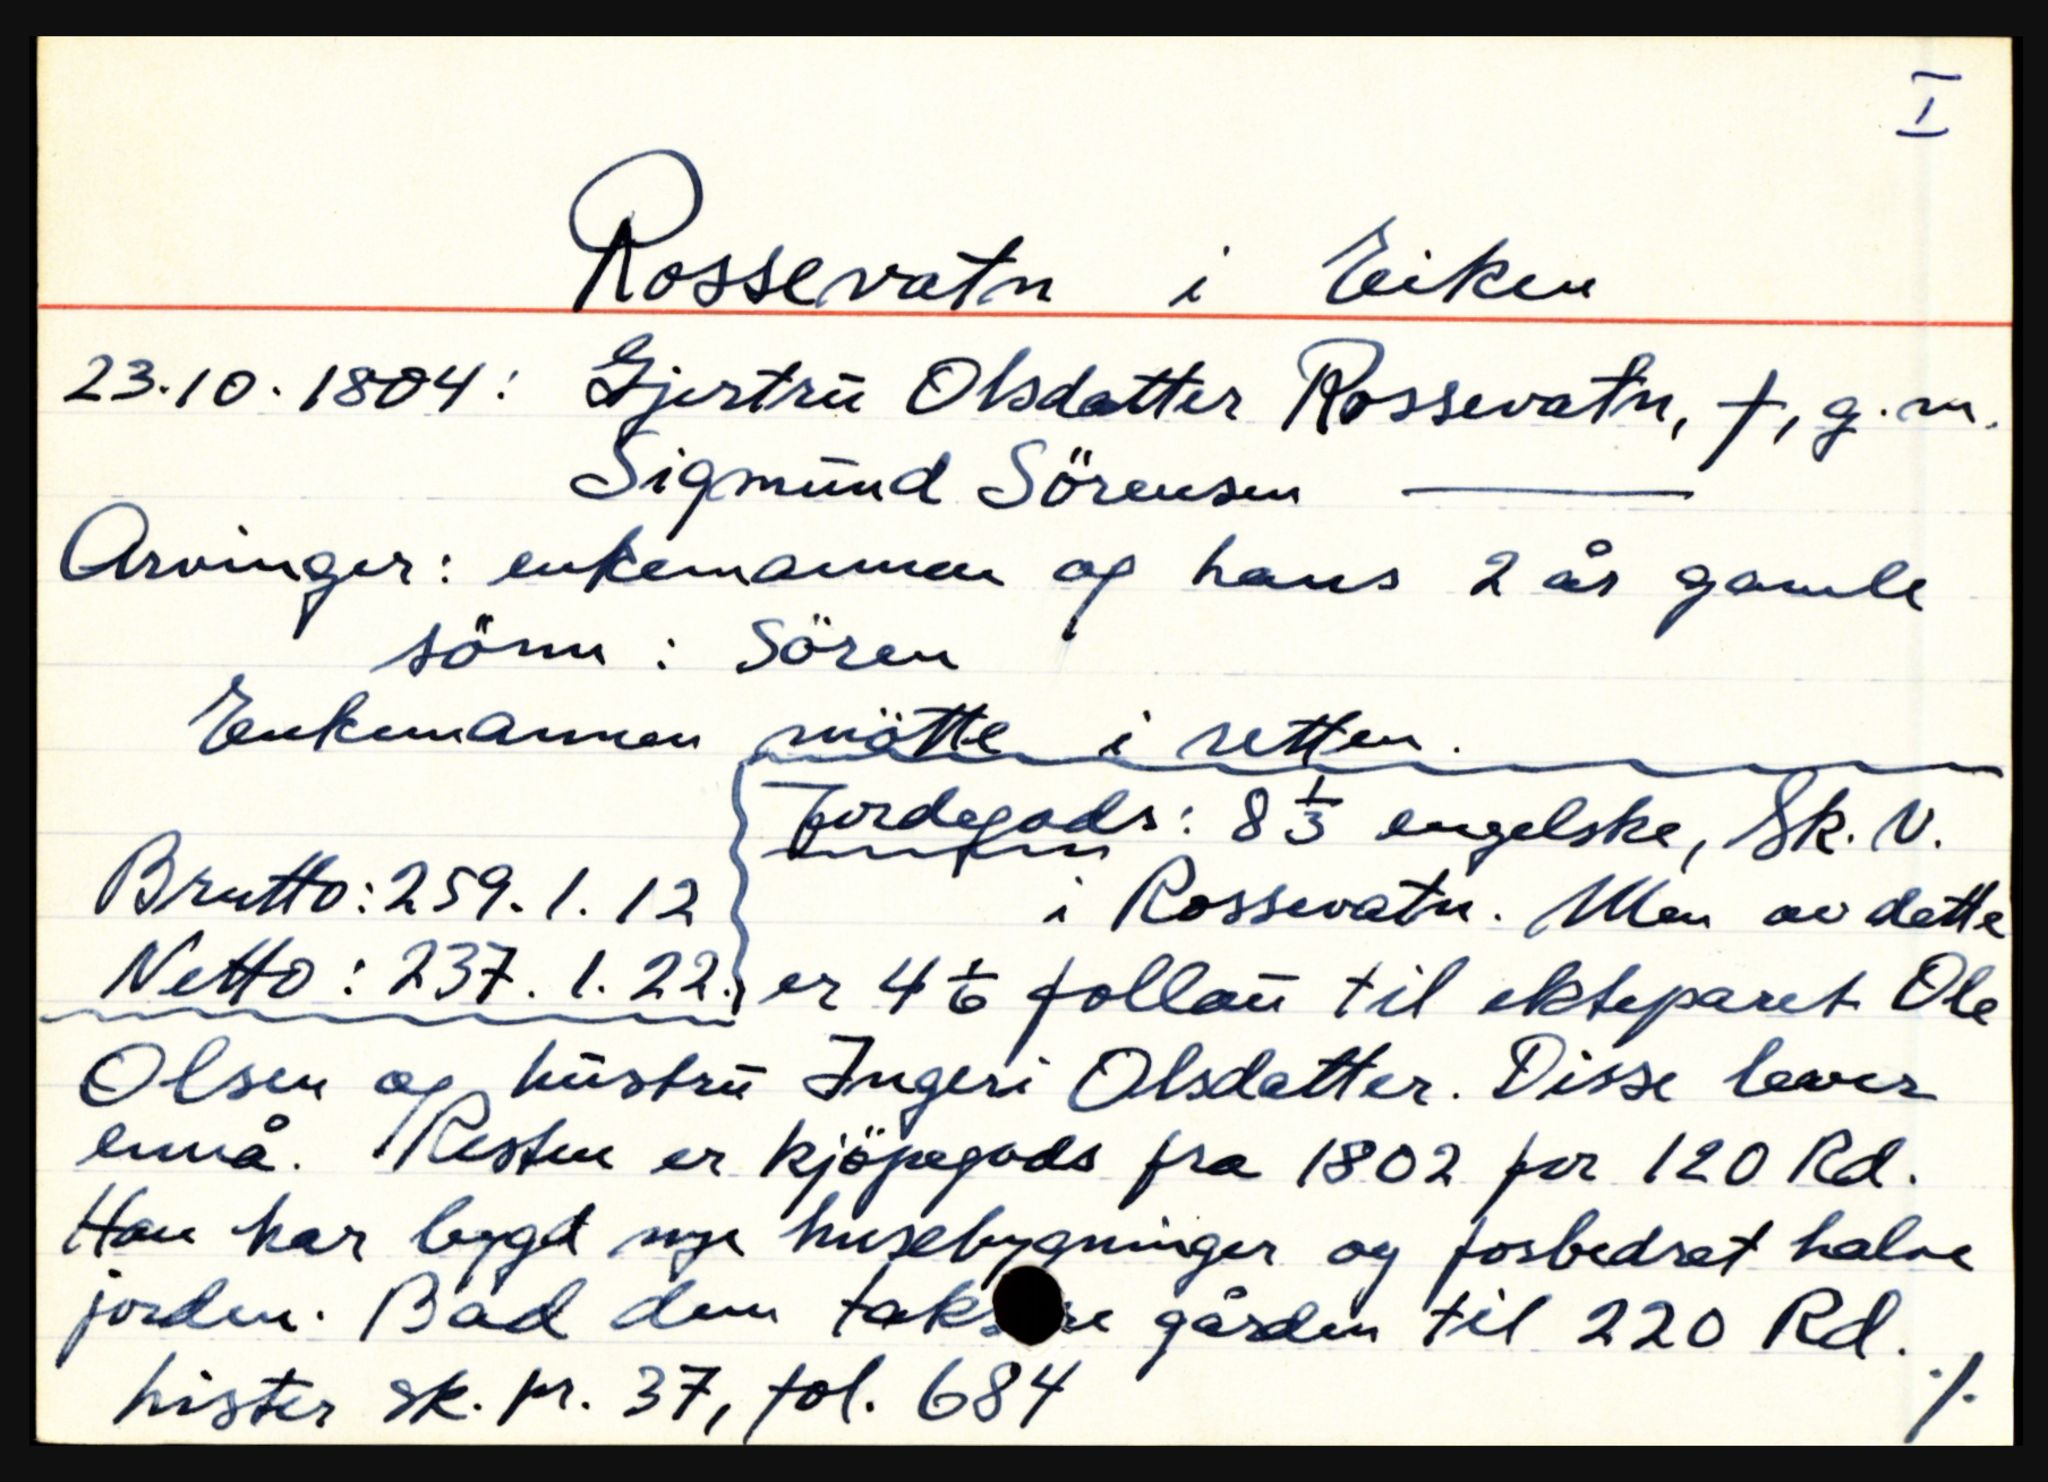 I
Rossevatn i Eiken
23.10.1804: Gjertrü Olsdatter Rossevatn, †, g.m.
Sigmünd Sörensen ———
Arvinger: enkemannen og hans 2 år gamle
sönn: Sören
Enkemannen mötte i retten.
Jordegods: 8 1/3 engelske, Sk. V.
Brutto: 259. 1. 12
i Rossevatn. Men av dette
Netto: 237. 1. 22.
er 4 1/6 follaü til ekteparet Ole
Olsen og hüstrü Ingeri Olsdatter. Disse lever
ennå. Resten er kjöpegods fra 1802 for 120 Rd.
Han har bygd nye husebygninger og forbedret halve
jorden. Bad dem gården til 220 Rd.
Lister sk. pr. 37, fol. 684
./.